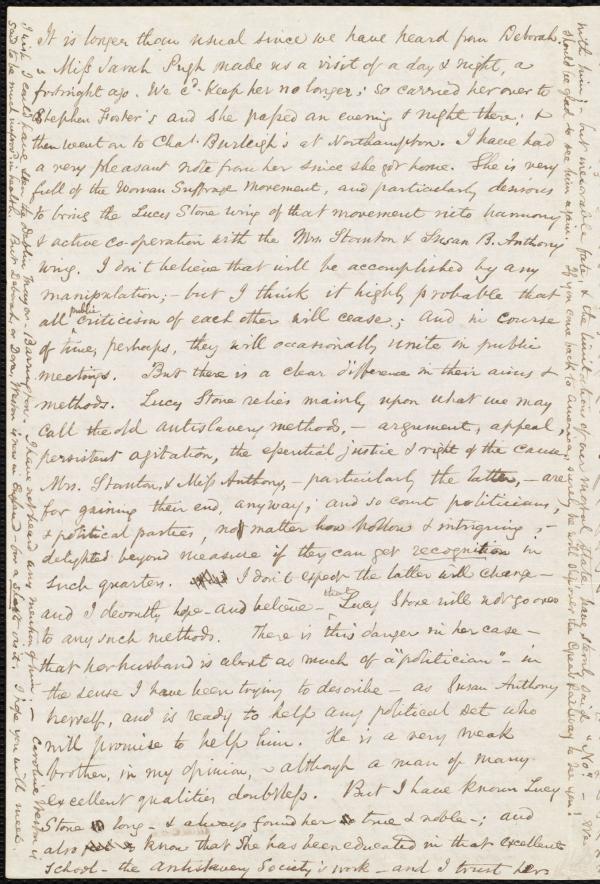 It is longer than usual since we have heard from Deborah.
Miss Sarah Pugh made us a visit of a day & night, a
fortnight ago. We cd. keep her no longer; so carried her over to
Stephen Foster's and she passed an evening & night there; &
then went on to Chas. Burleigh's at Northampton. I have had
a very pleasant note from her since she got home. She is very
full of the Woman Suffrage Movement, and particularly desirous
to bring the Lucy Stone wing of that movement into harmony
& active co-operation with the Mrs. Stanton & Susan B. Anthony
wing. I don't believe that will be accomplished by any
manipulation; - but I think it highly probable that
all public criticism of each other will cease; and in course
of time, perhaps, they will occasionally unite in public
meetings. But there is a clear difference in their aims &
methods. Lucy Stone relies mainly upon what we may
call the old antislavery methods, - argument, appeal,
persistent agitation, the essential justice & right of the cause.
Mrs. Stanton & Miss Anthony, - particularly the latter, - are
for gaining their end, anyway, and so court politicians,
& political parties, no matter how hollow & intriguing, -
delighted beyond measure if they can get recognition in
such quarters. I don't expect the latter will change -
and I devoutly hope - and believe - that Lucy Stone will not go over
to any such methods. There is this danger in her case -
that her husband is about as much of a "politician" - in
the sense I have been trying to describe - as Susan Anthony
herself, and is ready to help any political set who
will promise to help him. He is a very weak
brother, in my opinion, - although a man of many
excellent qualities doubtless. But I have known Lucy
Stone long - & always found her true & noble -; and
also know that she has been educated in that excellent
school - the Antislavery Society's work - and I trust her
I wish I could have seen the Dublin Mayor - Barrington. I have not heard any mention of him; - Caroline Weston is
said to be much improved in health. But Deborah or Dora Weston is now in England - on a short visit. I hope you will meet.
with him; - but inexorable fate, & the limitations of our mortal state, have sternly said "No." - We
should be glad to see him again. If you come back to America, surely he will
to see you!